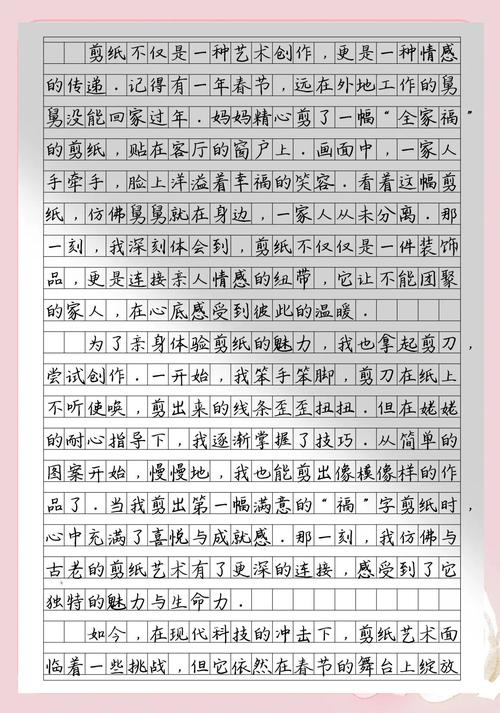 剪纸不仅是一种艺术创作，更是一种情感
的传递．记得有一年春节，远在外地工作的舅
舅没能回家过年．妈妈精心剪了一幅“全家福”
的剪纸，贴在客厅的窗户上．画面中，一家人
手牵手，脸上洋溢着幸福的笑容．看着这幅剪
纸，仿佛舅舅就在身边，一家人从未分离．那
一刻，我深刻体会到，剪纸不仅仅是一件装饰
品，更是连接亲人情感的纽带，它让不能团聚
的家人，在心底感受到彼此的温暖．
为了亲身体验剪纸的魅力，我也拿起剪刀，
尝试创作．一开始，我笨手笨脚，剪刀在纸上
不听使唤，剪出来的线条歪歪扭扭．但在姥姥
的耐心指导下，我逐渐掌握了技巧．从简单的
图案开始，慢慢地，我也能剪出像模像样的作
品了．当我剪出第一幅满意的“福”字剪纸时，
心中充满了喜悦与成就感．那一刻，我仿佛与
古老的剪纸艺术有了更深的连接，感受到了它
独特的魅力与生命力．
如今，在现代科技的冲击下，剪纸艺术面
临着一些挑战，但它依然在春节的舞台上绽放